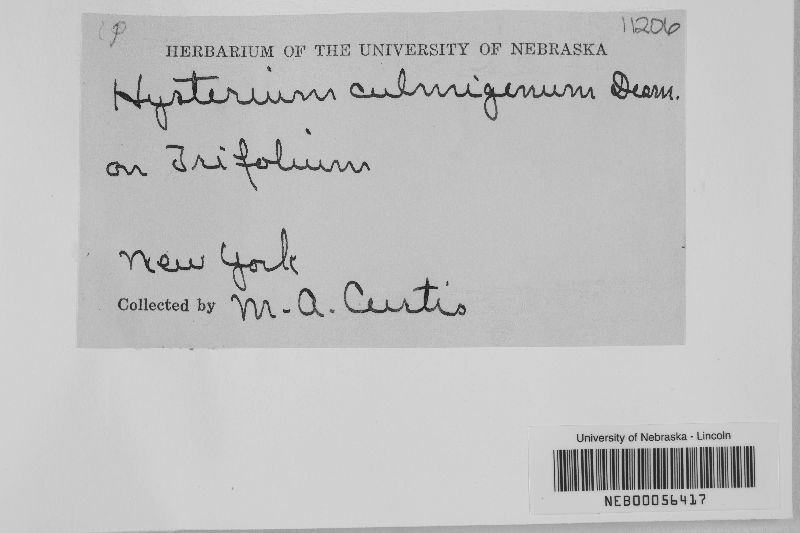 cp 11206
HERBARIUM OF THE UNIVERSITY OF NEBRASKA
Hysterium culmigenum Desm.
on Trifolium
New York
Collected by M. A. Curtis
University of Nebraska - Lincoln
NEB00056417